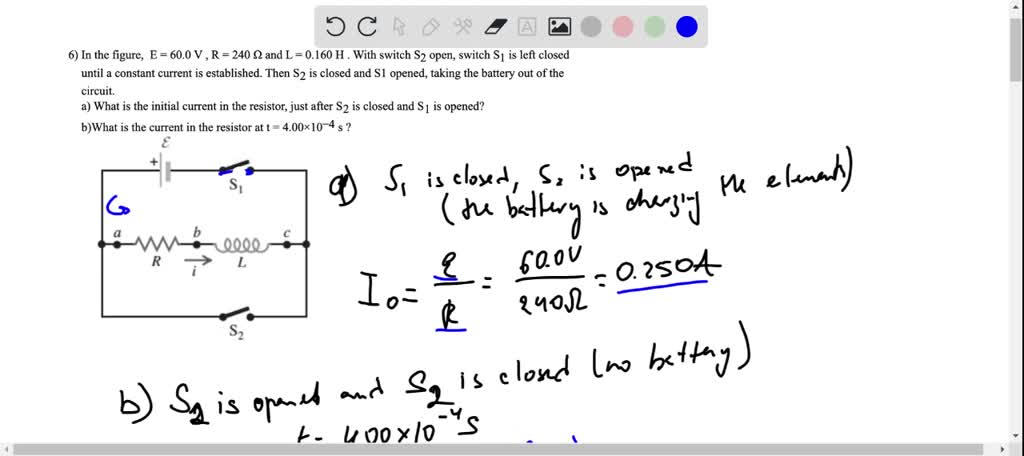 6) In the figure, E = 60.0 V , R = 240 Ω and L = 0.160 H . With switch S2 open, switch S1 is left closed
until a constant current is established. Then S2 is closed and S1 opened, taking the battery out of the
circuit.
a) What is the initial current in the resistor, just after S2 is closed and S1 is opened?
b)What is the current in the resistor at t = 4.00×10−4 s ?
ℰ
+
S1
a
b
c
R
i
L
S2
a) S1 is closed, S2 is opened
(the battery is charging the elements)
I0 = ℰ/R = 60.0V/240Ω = 0.250A
b) S2 is opened and S2 is closed (no battery)
t = 4.00×10−4 S